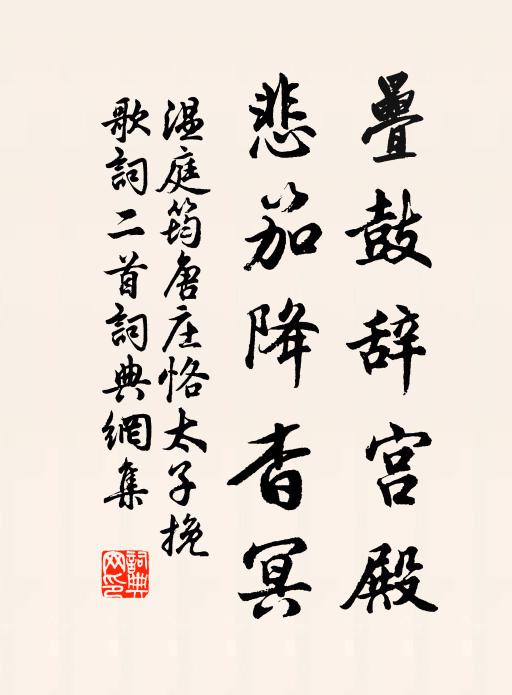 疊鼓辞宫殿
悲笳降杳冥
温庭筠唐庄恪太子挽
歌詞二首詞典網集
詞典
网印